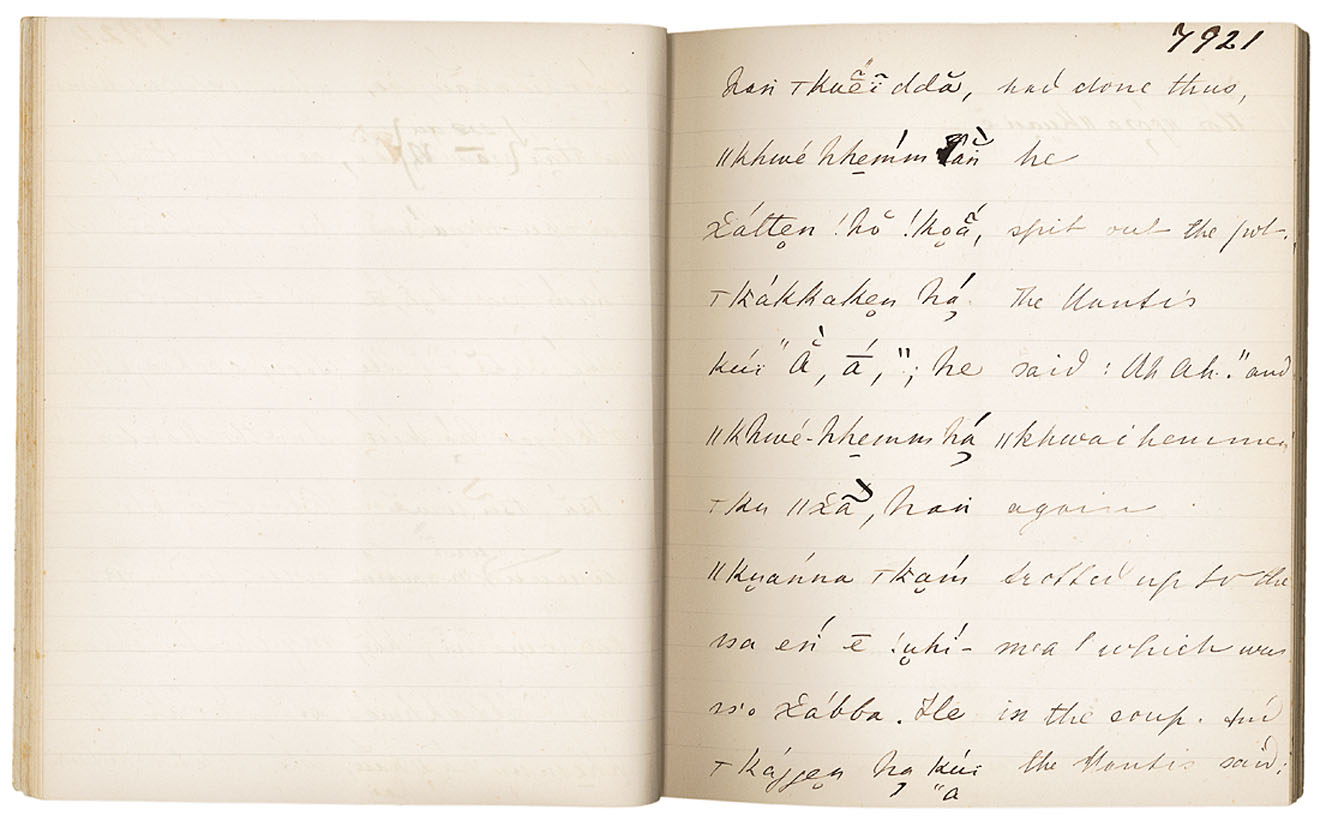 7921
han Ʇkuĕĭddā̆, had done thus,
ǁkhwé hhe̱ḿm ān he
x́átte̯n !hŏ !ko̯ā̆́, spit out the pot.
Ʇkákkake̯n há̦. The Mantis
kúï "Ằ, ā́,"; he said: Ah Ah." and
ǁkhwé-hhe̱mm há̦ ǁkhwaihemmen
Ʇku ǁx́ā̆, han again
ǁku̯ańna Ʇka̯ḿ trotted up to the
ssa eń ē !u̯hí- meat which was
ss'o x́ábba. He in the soup. And
Ʇkágge̯n ha̦ kúï the Mantis said:
"a